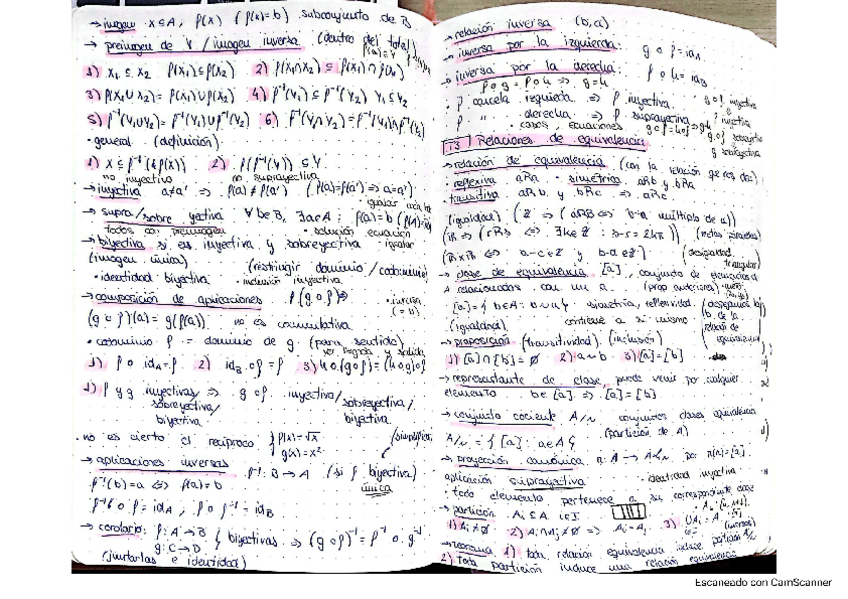 → imagen · x ∈ A, f(x) (f(x)=b) subconjunto de B
→ preimagen de Y / imagen inversa (dentro del total)
1) X₁ ⊆ X₂ f(X₁) ⊆ f(X₂) 2) f(X₁∩X₂) ⊆ f(X₁)∩f(X₂)
3) f(X₁∪X₂) = f(X₁)∪f(X₂) 4) f⁻¹(Y₁) ⊆ f⁻¹(Y₂) Y₁ ⊆ Y₂
5) f⁻¹(Y₁∪Y₂) = f⁻¹(Y₁)∪f⁻¹(Y₂) 6) f⁻¹(Y₁∩Y₂) = f⁻¹(Y₁)∩f⁻¹(Y₂)
· general (definición)
1) X ⊆ f⁻¹(f(X)) 2) f(f⁻¹(Y)) ⊆ Y
no inyectivo no suprayectivo
→ inyectiva a≠a' ⇒ f(a)≠f(a') (f(a)=f(a') ⇒ a=a')
→ supra/sobre yectiva : ∀b∈B, ∃a∈A : f(a)=b
todos con preimagen · solución ecuación
→ biyectiva si es inyectiva y sobreyectiva · igualar
(imagen única) (restringir dominio/codominio)
· identidad biyectiva · inclusión inyectiva
→ composición de aplicaciones f(g∘f)
(g∘f)(a) = g(f(a)) no es conmutativa
· codominio f = dominio de g (para sentido)
1) f∘id_A = f 2) id_B∘f = f 3) h∘(g∘f) = (h∘g)∘f
1) f y g inyectivas ⇒ g∘f inyectiva/
sobreyectiva/ sobreyectiva/
biyectiva biyectiva
· no es cierto el recíproco { f(x)=√x (simplificar)
g(x)=x²
→ aplicaciones inversas f⁻¹: B → A (si f biyectiva)
f⁻¹(b)=a ⇔ f(a)=b única
f⁻¹∘f = id_A , f∘f⁻¹ = id_B
→ corolario: f: A → B { biyectivas ⇒ (g∘f)⁻¹ = f⁻¹∘g⁻¹
g: C → D
(juntarlas e identidad)
→ relación inversa (b,a)
→ inversa por la izquierda: g∘f = id_A
→ inversa por la derecha: f∘h = id_B
f∘g = f∘h ⇒ g=h
· f cancela izquierda ⇒ f inyectiva
· f " derecha ⇒ f suprayectiva
· casos, ecuaciones
1.3 Relaciones de equivalencia
→ relación de equivalencia (con la relación
· reflexiva aRa · simétrica aRb y bRa
· transitiva aRb y bRc ⇒ aRc
(igualdad) (Z ⇒ (aRb ⇔ b-a múltiplo de n))
(R ⇒ (rRs ⇔ ∃k∈Z : s-r = 2kπ))
(R×R ⇔ a-c∈Z y b-d∈Z) (desigualdad triangular)
→ clase de equivalencia [a], conjunto de elementos de
A relacionados con un a
[a] = {b∈A : b∼a} simetría, reflexividad
(igualdad) contiene a sí mismo
→ proposición (transitividad) (inclusión)
1) [a]∩[b] ≠ ∅ 2) a∼b 3) [a]=[b]
→ representante de clase, puede venir por cualquier
elemento b∈[a] ⇒ [a]=[b]
→ conjunto cociente A/∼ conjuntos clases equivalencia
A/∼ = {[a] : a∈A} (partición de A)
→ proyección canónica π: A → A/∼ π(a)=[a]
aplicación suprayectiva · identidad inyectiva
· todo elemento pertenece a su correspondiente clase
→ partición Aᵢ ⊆ A i∈I
1) Aᵢ≠∅ 2) Aᵢ∩Aⱼ≠∅ ⇒ Aᵢ=Aⱼ 3) ∪Aᵢ = A
→ teorema 1) toda relación equivalencia induce partición A/∼
2) Toda partición induce una relación equivalencia
Escaneado con CamScanner